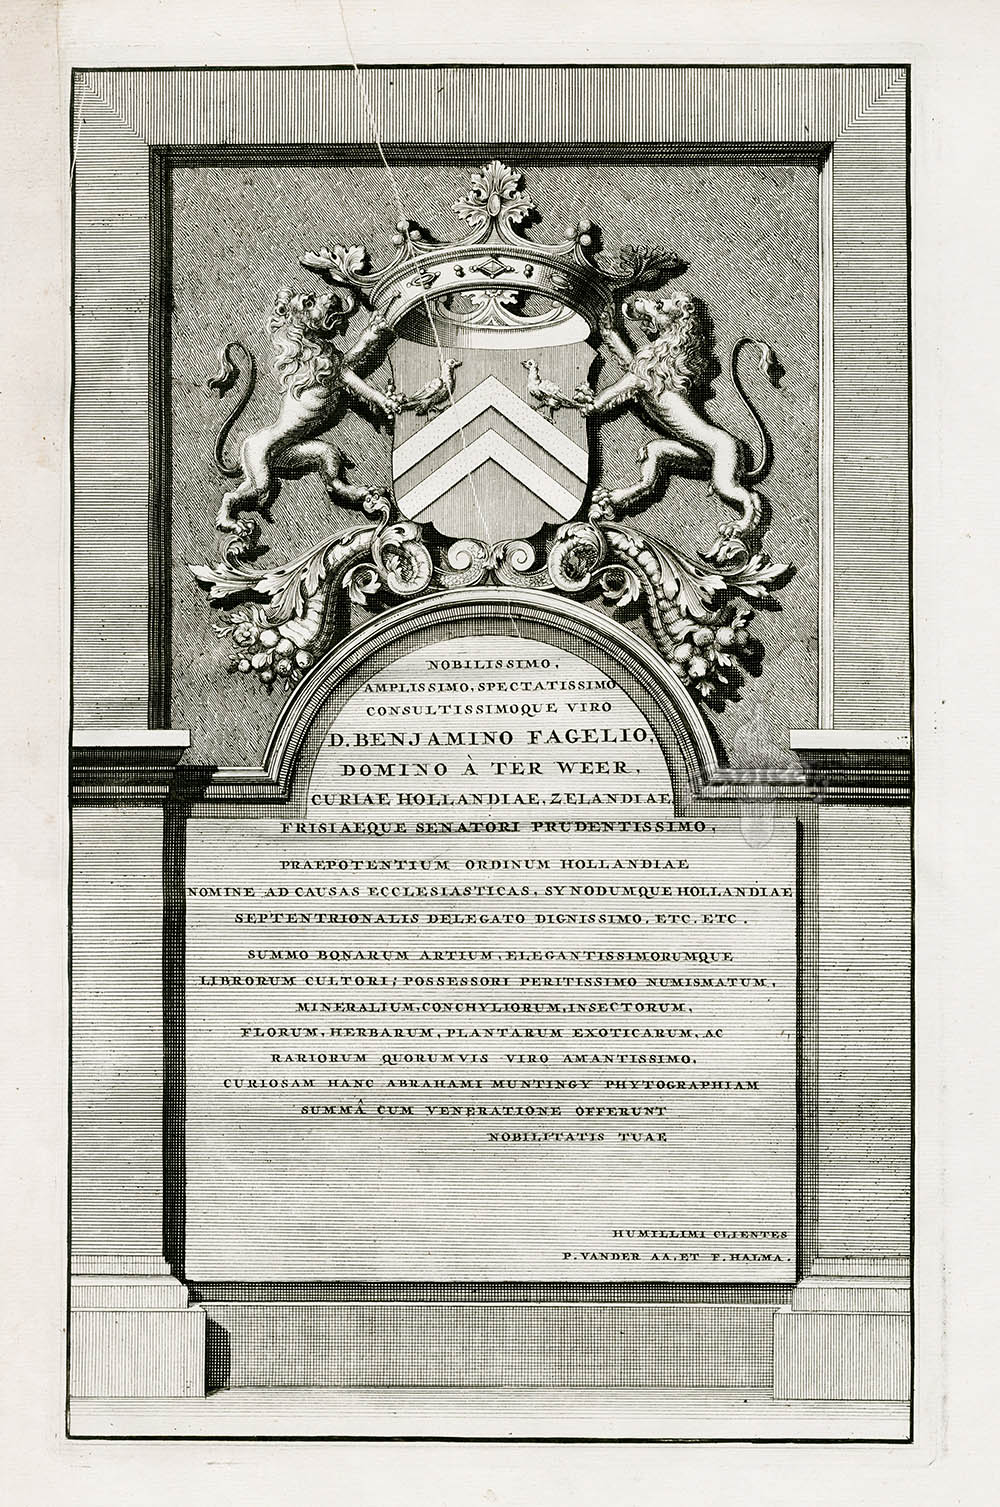 NOBILISSIMO,
AMPLISSIMO, SPECTATISSIMO
CONSULTISSIMOQUE VIRO
D. BENJAMINO FAGELIO,
DOMINO À TER WEER,
CURIAE HOLLANDIAE, ZELANDIAE
FRISIAEQUE SENATORI PRUDENTISSIMO,
PRAEPOTENTIUM ORDINUM HOLLANDIAE
NOMINE AD CAUSAS ECCLESIASTICAS, SYNODUMQUE HOLLANDIAE
SEPTENTRIONALIS DELEGATO DIGNISSIMO, ETC. ETC.
SUMMO BONARUM ARTIUM, ELEGANTISSIMORUMQUE
LIBRORUM CULTORI; POSSESSORI PERITISSIMO NUMISMATUM,
MINERALIUM, CONCHYLIORUM, INSECTORUM,
FLORUM, HERBARUM, PLANTARUM EXOTICARUM, AC
RARIORUM QUORUMVIS VIRO AMANTISSIMO,
CURIOSAM HANC ABRAHAMI MUNTINGY PHYTOGRAPHIAM
SUMMÂ CUM VENERATIONE OFFERUNT
NOBILITATIS TUAE
HUMILLIMI CLIENTES
P. VANDER AA, ET F. HALMA.